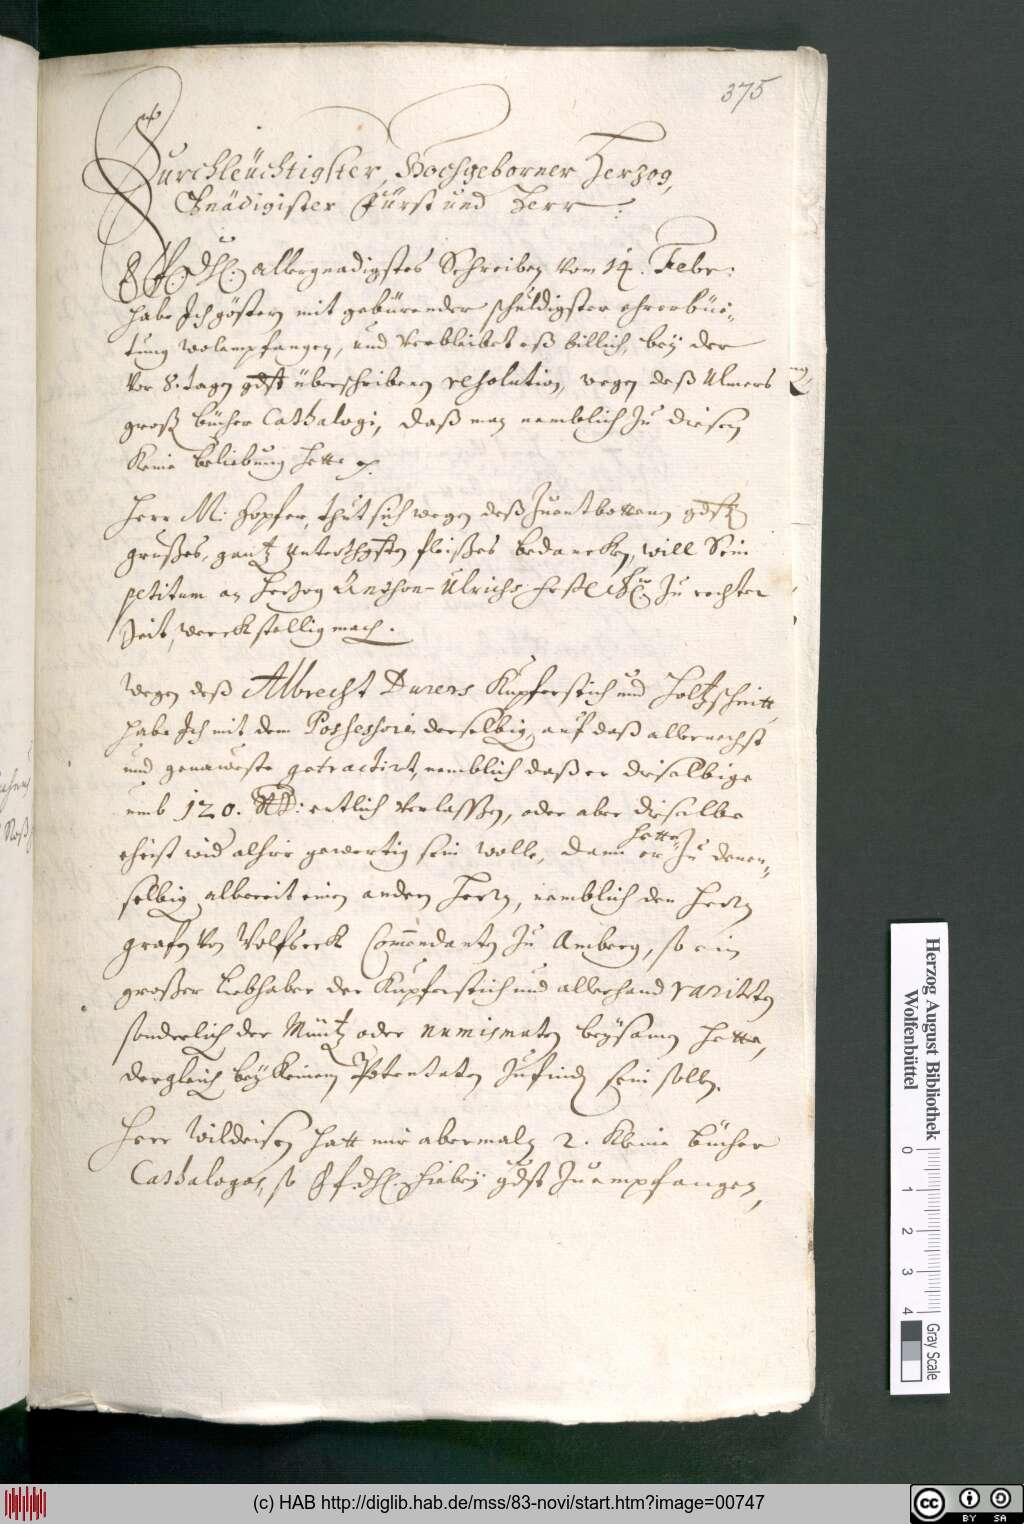 375
Durchleüchtigster, Hochgeborner Herzog,
Gnädigister Fürst und Herr.
E. F. Dhl. allergnedigstes Schreiben vom 14. Febr:
habe Ich göstern mit gebürender schuldigster ehrerbüe-
tung wolempfangen, und verbleibet eß billich, bey der
vor 8. tagen gdst überschribenen resolution, wegen deß Ulmers
groß bücher Cathalogi, daß man nemblich zu diesen
Keine beliebung hette
Herr M: Hopfer, thut sich wegen deß zuentbottenen gdsten
grußes, gantz underthgsten fleißes bedancken, will Sein
petitum an Herzog Anthon-Ulrichs zu rechter
Zeit, werckstellig mach.
Wegen deß Albrecht Durers Kupferstich und Holtzschnitt,
habe Ich mit dem Possessorn derselbigen auf daß allernechst
und genaweste getractirt, nemblich daß er dieselbige
umb 120. entlich verlassen, oder aber dieselbe
ehist wid alhier gewertig sein wolle, dann er hette zu denen-
selbig albereit einen andern Herrn, nemblich den Herrn
grafen von Wolfseck Commendanten zu Amberg, so ein
großer Liebhaber der Kupferstich und allerhand rariteten
sonderlich der Müntz oder numismaten beysamen hette,
dergleich bey Keinem Potentaten zufinden sein sollen.
Herr Wildeisen hatt mir abermaln 2. Kleine bücher
Cathalogos, so E. f. dhl. hiebey gdst zuempfangen,
Herzog August Bibliothek
Wolfenbüttel
0 1 2 3 4
Gray Scale
(c) HAB http://diglib.hab.de/mss/83-novi/start.htm?image=00747
cc BY SA